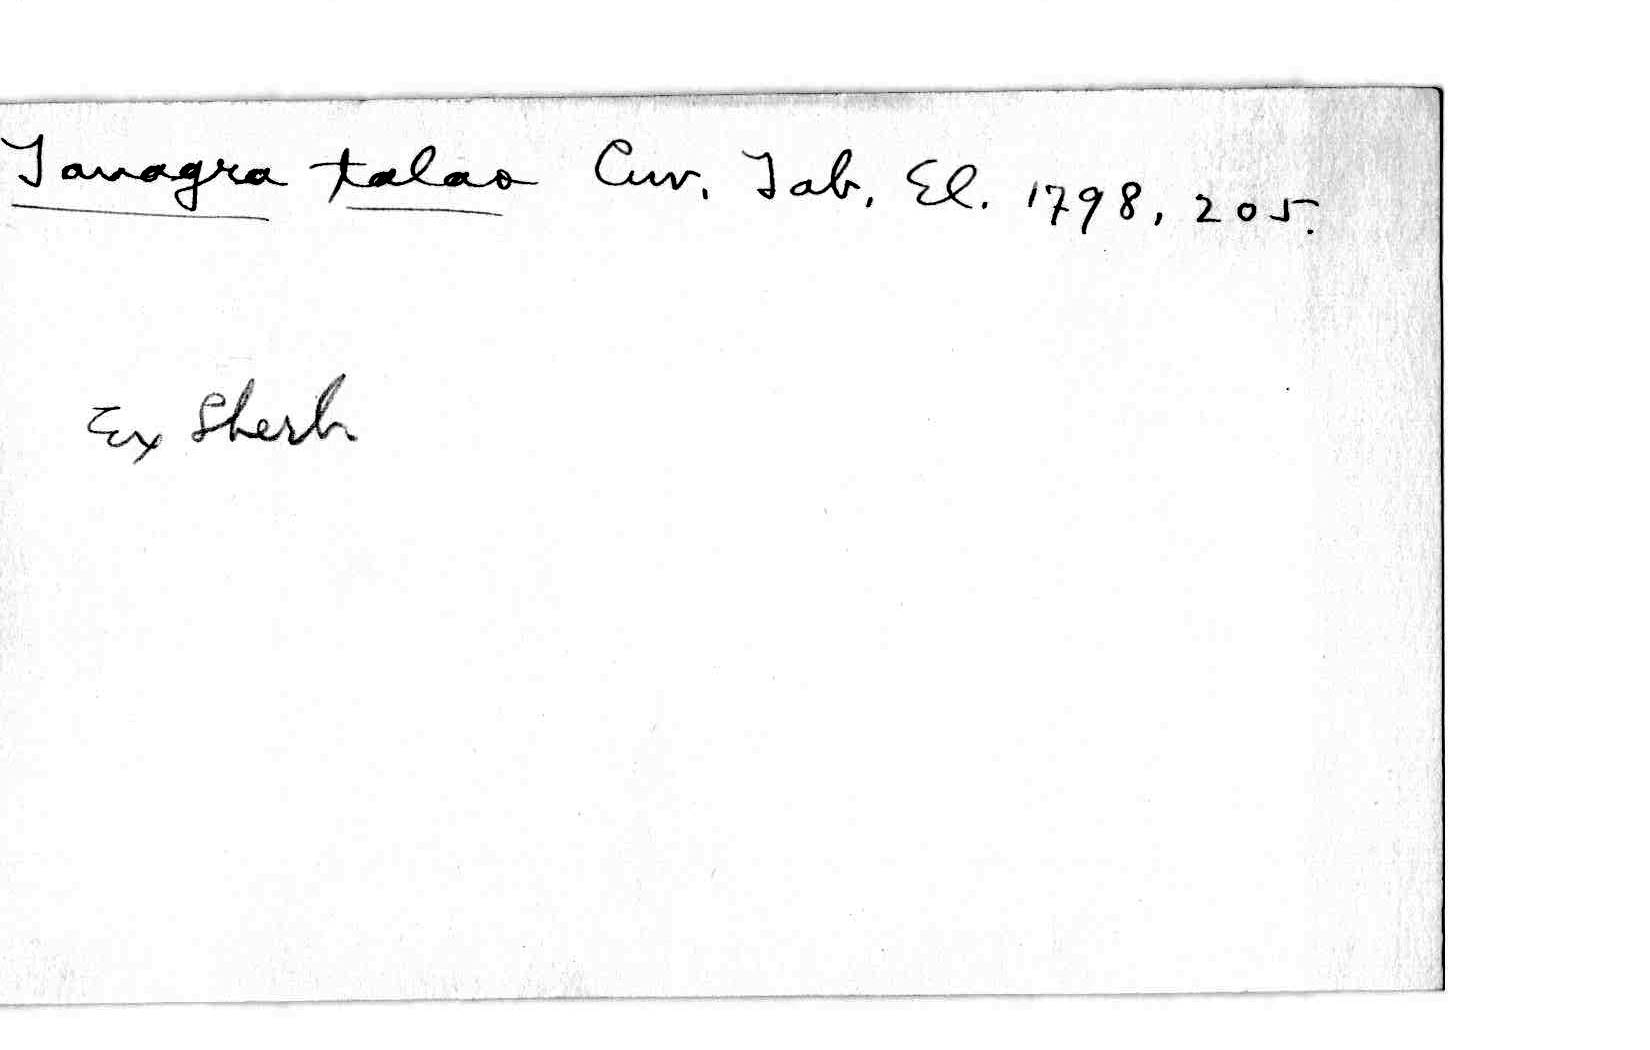 Tanagra talao Cuv. Tab. El. 1798, 205.
Ex Sherb